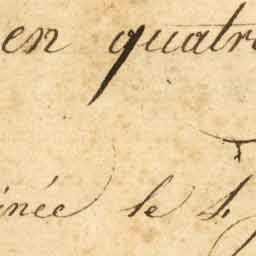 en quatr
inée le 4.